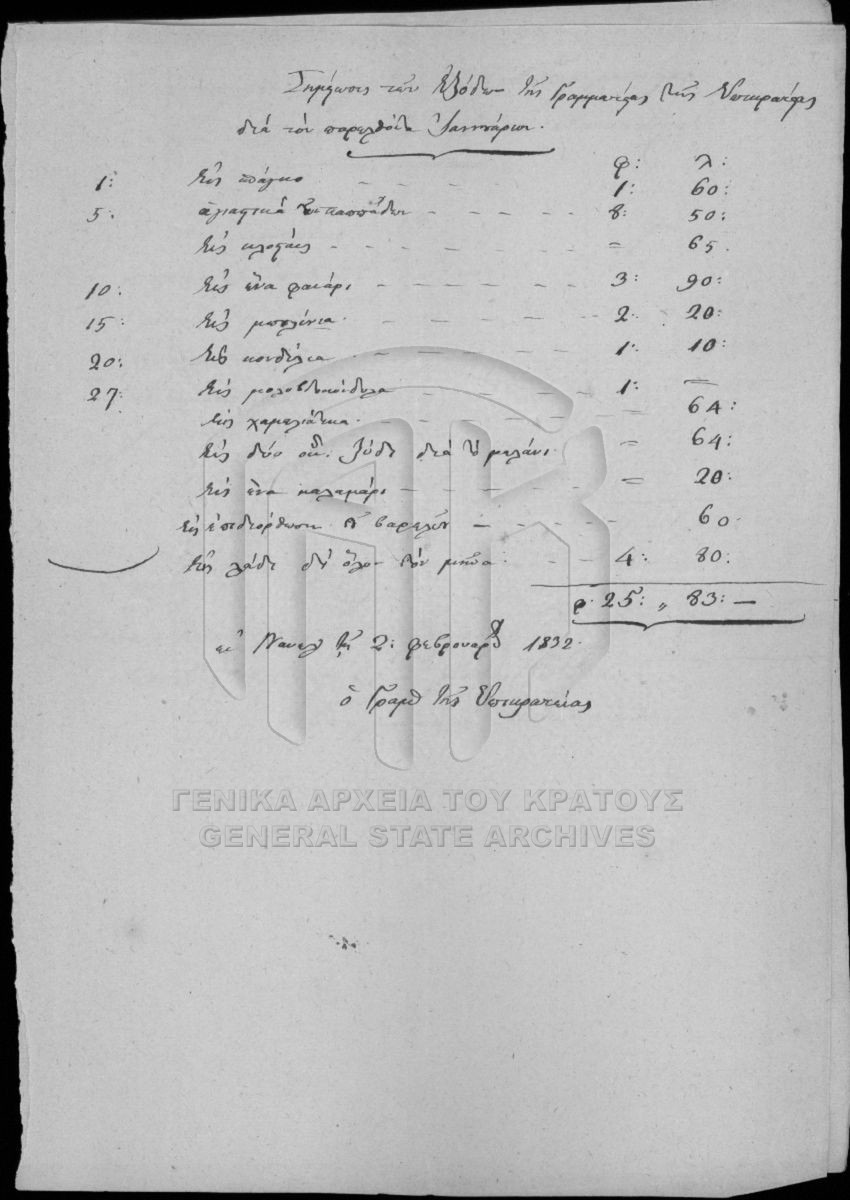 Σημείωσις των Εξόδων της Γραμματείας της Επικρατείας
διά τον παρελθόντα Ιαννουάριον.
φ: λ:
1: εις πάγκο - - - - 1: 60:
5: - - - - 8: 50:
εις κλοστάς - - - - = 65.
10: εις ένα φανάρι - - - - 3: 90:
15: εις - - - - 2: 20:
20: εις κονδύλια - - - - 1: 10:
27: εις μολυβδοκόνδυλα - - - - 1: —
εις - - - - 64:
εις δύο οκ. ξύδι διά το μελάνι - = 64:
εις ένα καλαμάρι - - - - = 20:
εις επιδιόρθωσιν βαρελιών - - - - 60
εις λάδι δι όλον τον μήνα - - 4: 80:
φ. 25: „ 83: —
εν Ναυπλ τη 2: φεβρουαρ 1832.
ο Γραμ της Επικρατείας
ΓΕΝΙΚΑ ΑΡΧΕΙΑ ΤΟΥ ΚΡΑΤΟΥΣ
GENERAL STATE ARCHIVES